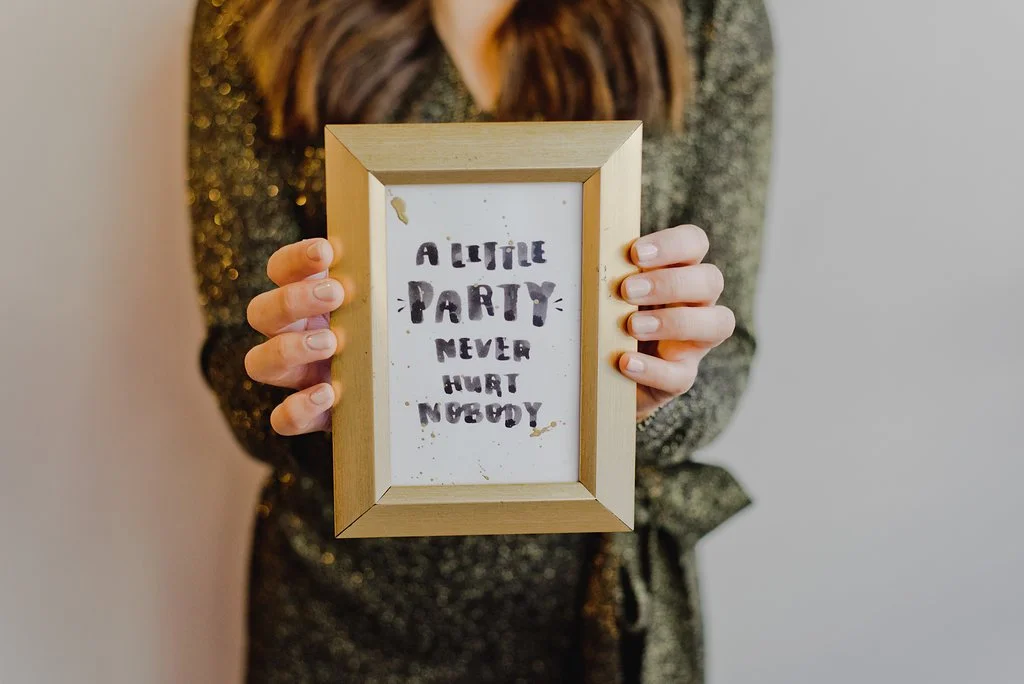 A LITTLE
PARTY
NEVER
HURT
NOBODY